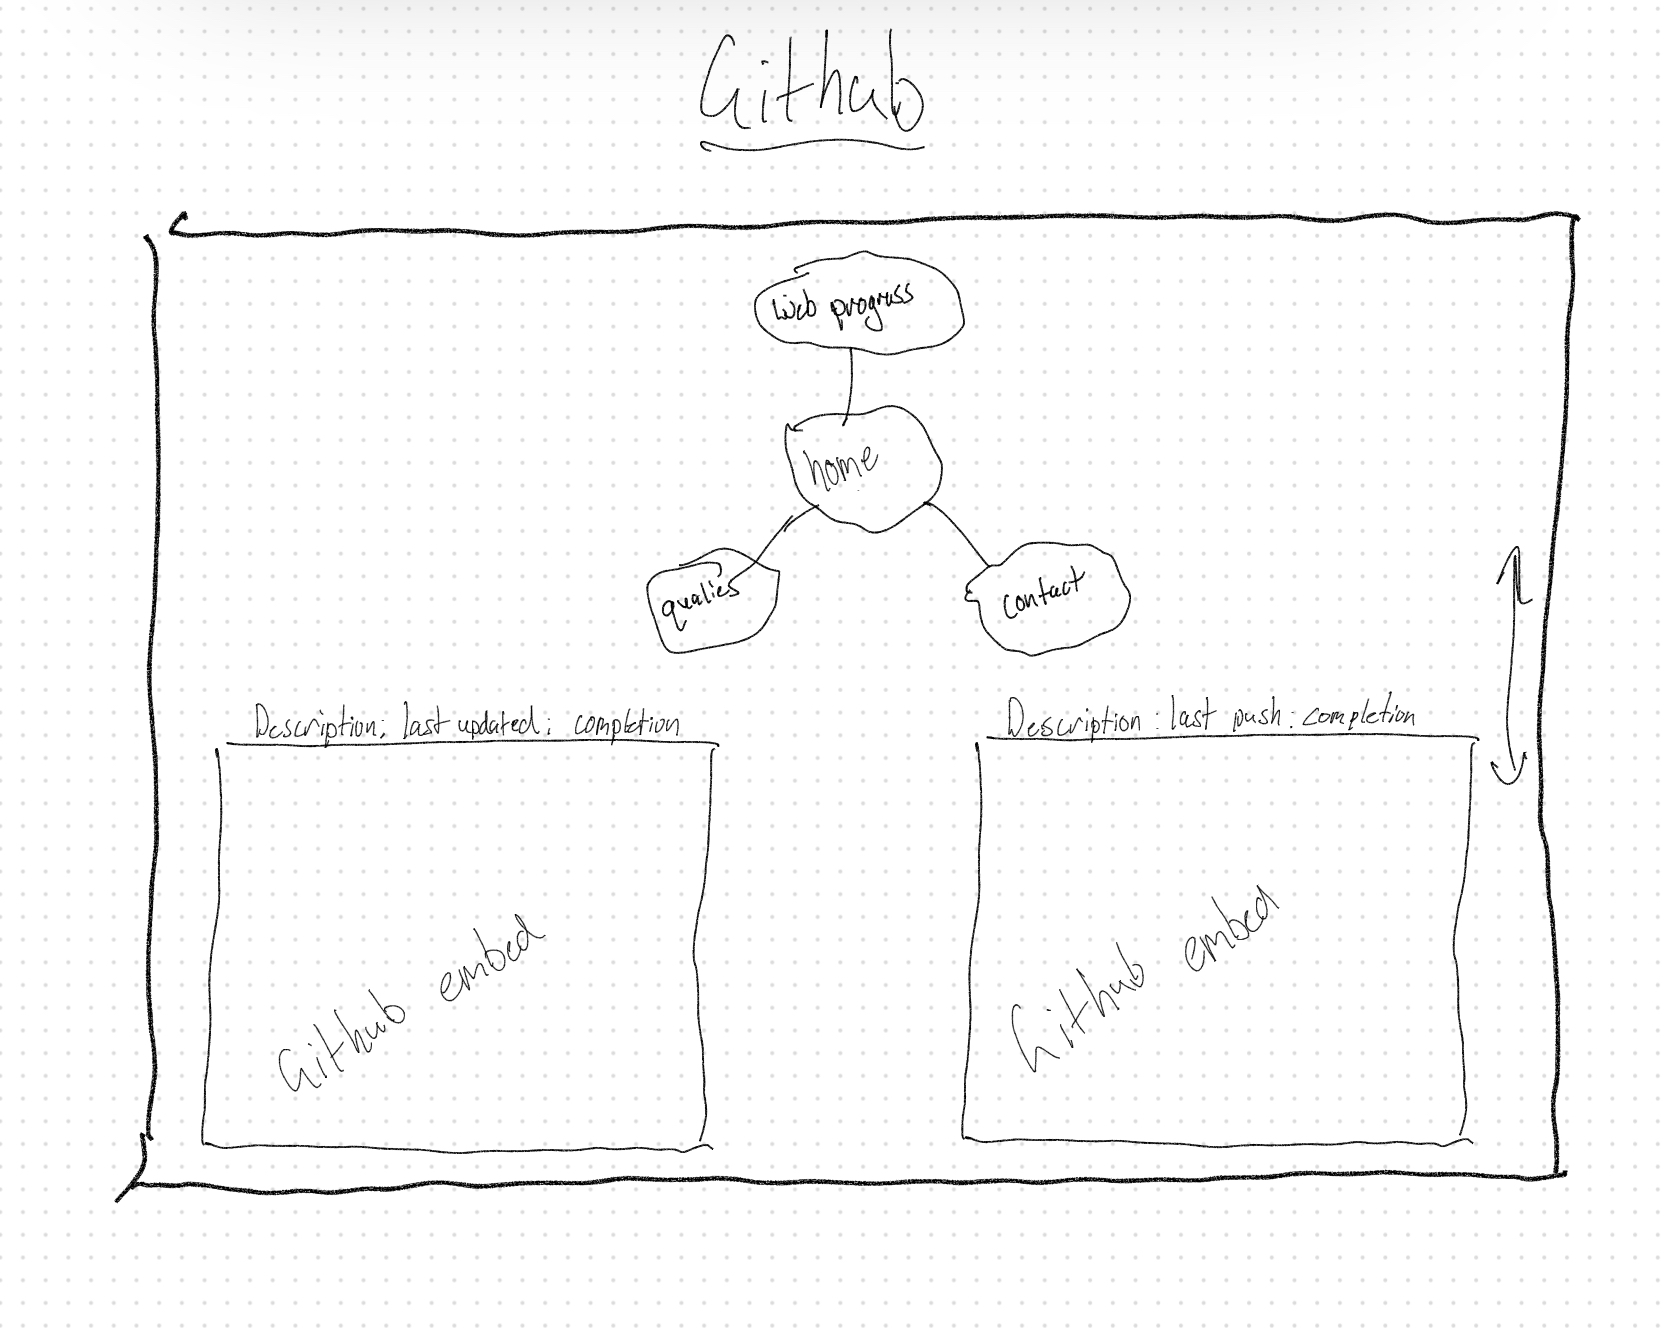 Github
Web progress
home
qualies
contact
Description: last updated: completion
Description: last push: completion
Github embed
Github embed